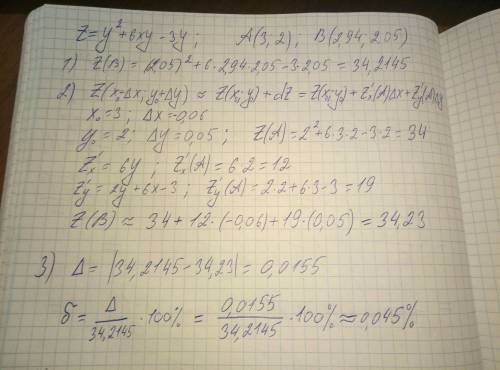 Z=y²+6xy-3y; A(3,2); B(2,94, 2,05)
1) Z(B) = (2,05)²+6·2,94·2,05-3·2,05 = 34,2145
2) Z(x₀+Δx; y₀+Δy) ≈ Z(x₀;y₀)+dZ = Z(x₀;y₀)+Z'ₓ(A)Δx+Z'y(A)Δy
x₀=3; Δx=-0,06
y₀=2; Δy=0,05; Z(A)=2²+6·3·2-3·2=34
Z'ₓ = 6y; Z'ₓ(A)=6·2=12
Z'y = 2y+6x-3; Z'y(A)=2·2+6·3-3=19
Z(B) ≈ 34+12·(-0,06)+19·(0,05)=34,23
3) Δ= |34,2145-34,23|=0,0155
δ = Δ/34,2145 ·100% = 0,0155/34,2145 ·100% ≈0,045%